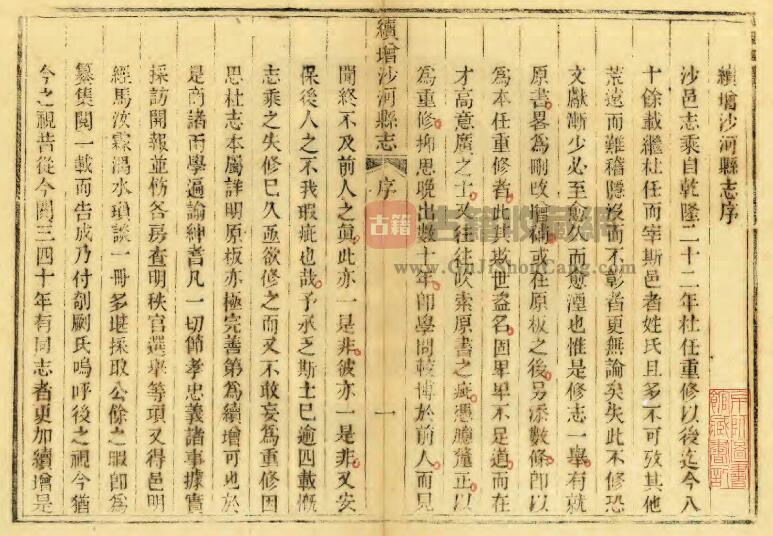 續增沙河縣志序
沙邑志乘自乾隆二十二年杜任重修以後迄今八
十餘載繼杜任而宰斯邑者姓氏且多不可攷其他
荒遠而難稽隱沒而不彰者更無論矣失此不修恐
文獻漸少必至愈久而愈湮也惟是修志一舉有就
原書畧爲刪改增補或在原板之後另添數條卽以
爲本任重修者此其欺世盜名固卑卑不足道而在
才高意廣之士又往往吹索原書之疵憑臆釐正以
爲重修抑思晚出數十年卽學問較博於前人而見
續增沙河縣志 序 一
聞終不及前人之眞此亦一是非彼亦一是非又安
保後人之不我瑕疵也哉予承乏斯土已逾四載慨
志乘之失修已久亟欲修之而又不敢妄爲重修因
思杜志本屬詳明原板亦極完善第爲續增可也於
是商諸兩學遍諭紳耆凡一切節孝忠義諸事據實
採訪開報並飭各房查明秩官選舉等項又得邑明
經馬汝霖渴水瑣談一冊多堪採取公餘之暇卽爲
纂集閱一載而告成乃付剞劂氏嗚呼後之視今猶
今之視昔從今閱三四十年有同志者更加續增是
古籍
古籍收藏網
www.GuJiShouCang.com